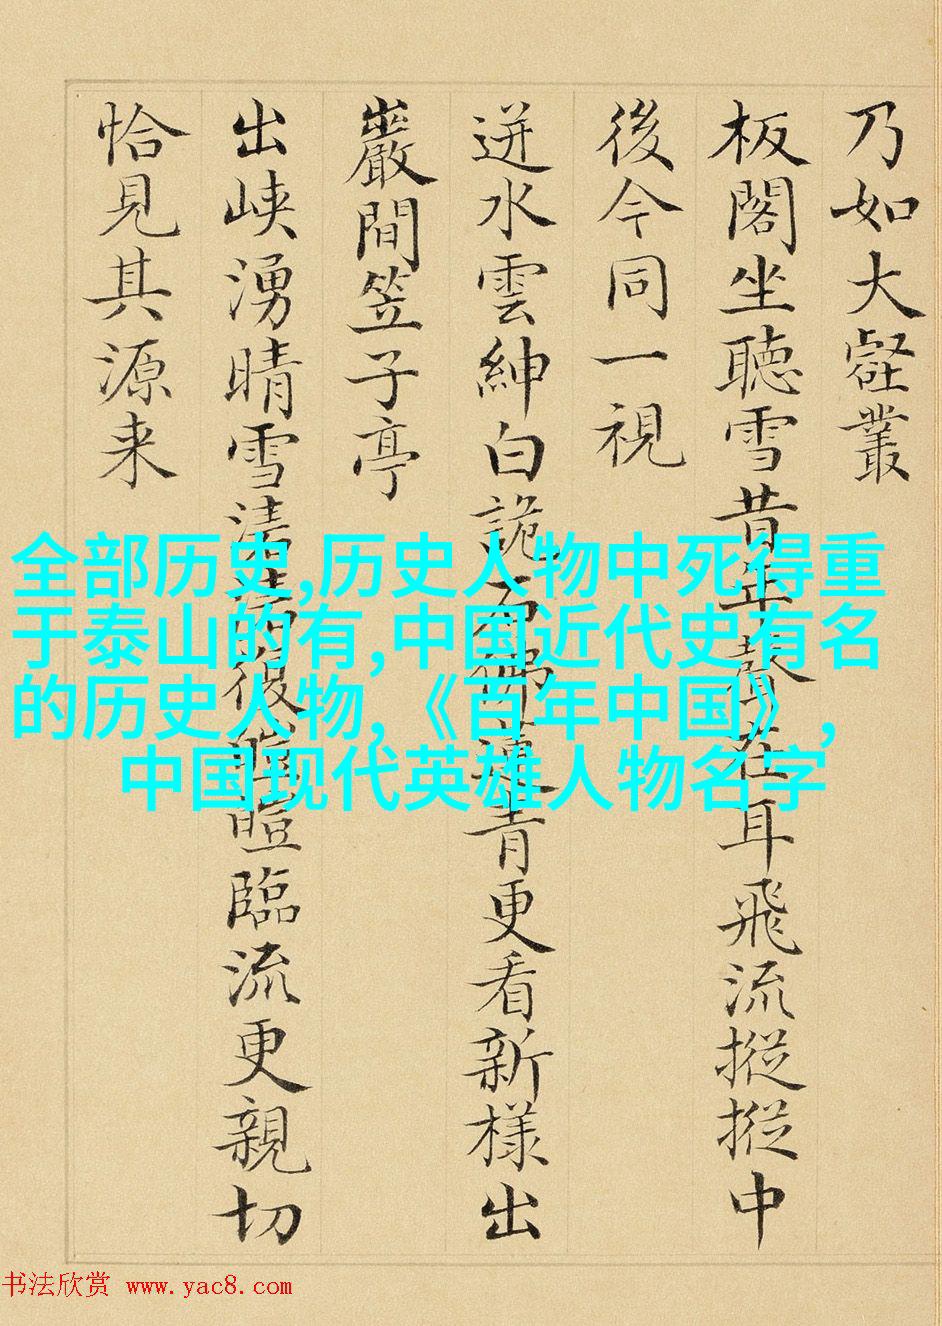 乃如大壑叢
板閣坐聽雪昔年聲在耳飛流摐摐中
後今同一視
迸水雲紳白詭石佛蓮青更看新樣出
巖間笠子亭
出峽湧晴雪清復臨流更親切
恰見其源来
全部历史,历史人物中死得重
于泰山的有,中国近代史有名
的历史人物,《百年中国》,
中国现代英雄人物名字
书法欣赏 www.yac8.com